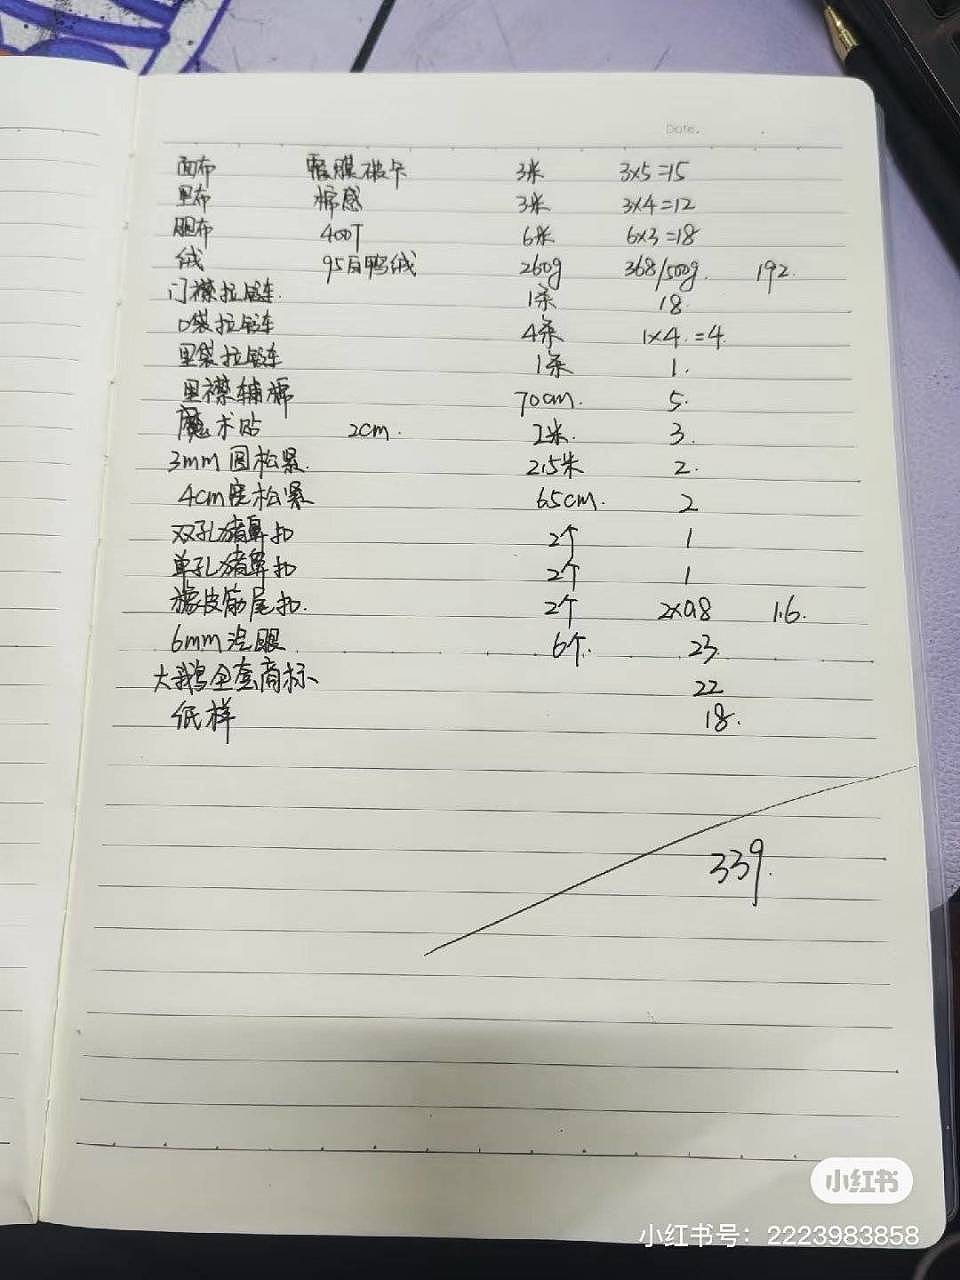 Date.
面布 覆膜破卡 3米 3×5=15
里布 棉感 3米 3×4=12
胆布 400T 6米 6×3=18
绒 95白鸭绒 260g 368/500g. 192
门襟拉链 1条 18
口袋拉链 4条 1×4.=4
里袋拉链 1条 1.
里襟辅棉 70cm. 5.
魔术贴 2cm. 2米 3.
3mm圆松紧. 2.5米 2.
4cm宽松紧 65cm. 2
双孔猪鼻扣 2个 1
单孔猪鼻扣 2个 1
橡皮筋尾扣. 2个 2×0.8 1.6.
6mm汽眼 6个. 23
大鹅全套商标 22
纸样 18.
339.
小红书
小红书号：2223983858